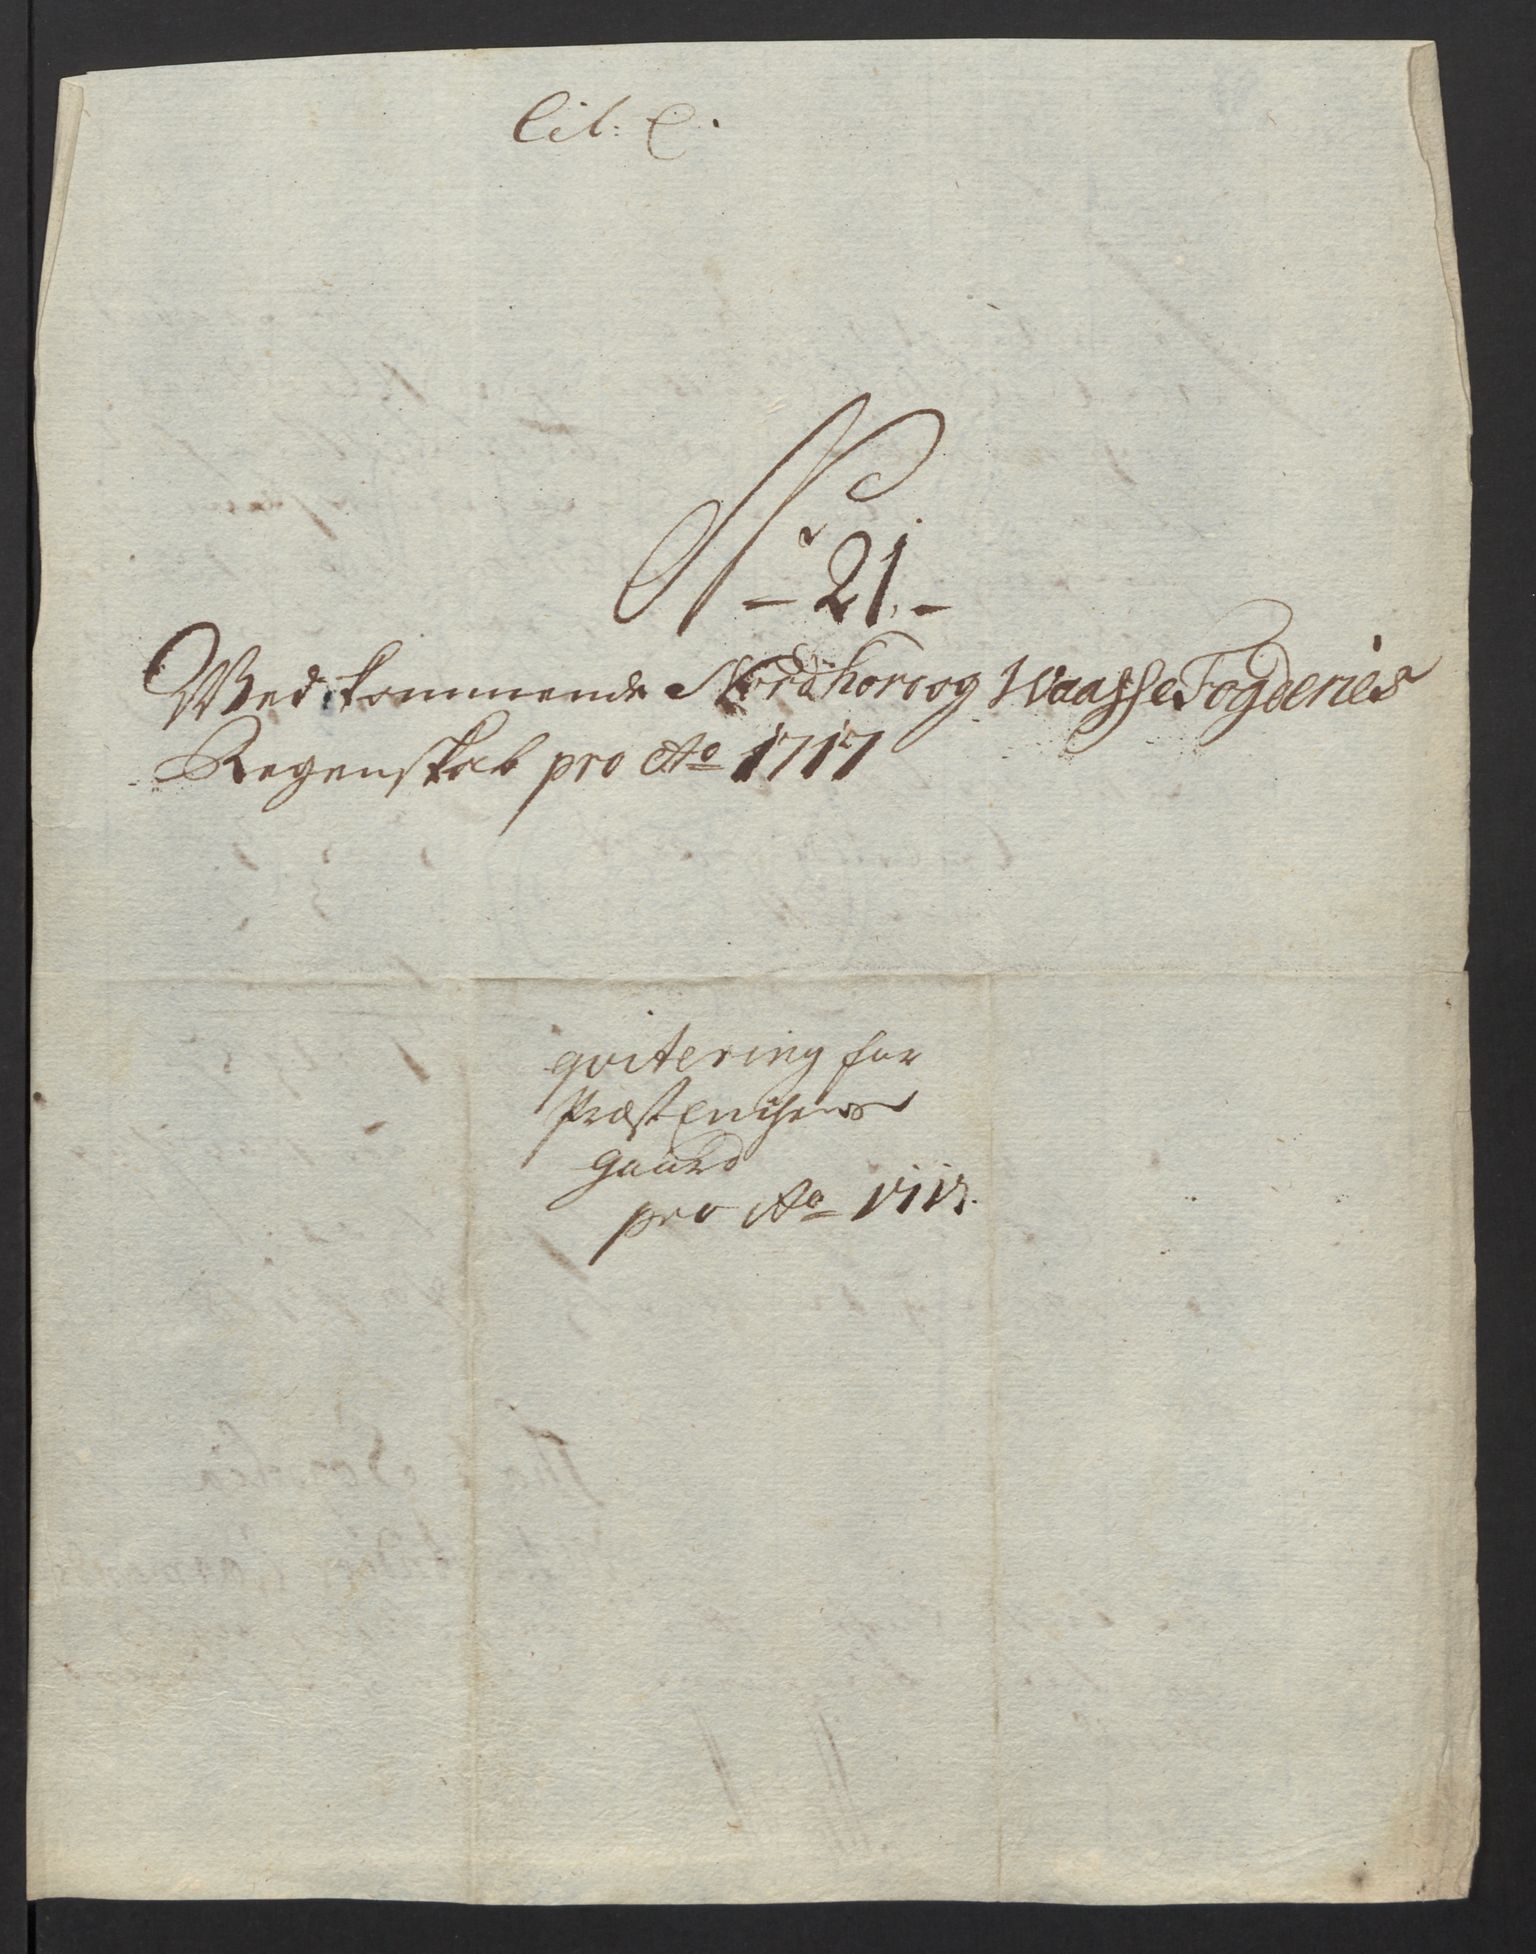 Lit: C.
No 21.
Wedkommende Nordhor: og Waasse Fogderies
Regenskab pro Ao 1717
qvitering for
Præst Enchens
gaard
pro Ao 1717.